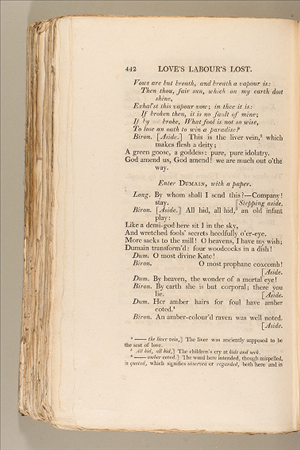 442 LOVE'S LABOUR'S LOST.
Vows are but breath, and breath a vapour is:
Then thou, fair sun, which on my earth dost
shine,
Exhal'st this vapour vow; in thee it is:
If broken then, it is no fault of mine;
If by broke, What fool is not so wise,
To lose an oath to win a paradise?
Biron. [Aside.] This is the liver vein, which
makes flesh a deity;
A green goose, a goddess: pure, pure idolatry.
God amend us, God amend! we are much out o'the
way.
Enter DUMAIN, with a paper.
Long. By whom shall I send this?—Company!
stay. [Stepping aside.
Biron. [Aside.] All hid, all hid, an old infant
play:
Like a demi-god here sit I in the sky,
And wretched fools' secrets heedfully o'er-eye.
More sacks to the mill! O heavens, I have my wish;
Dumain transform'd: four woodcocks in a dish!
Dum. O most divine Kate!
Biron. O most prophane coxcomb!
[Aside.
Dum. By heaven, the wonder of a mortal eye!
Biron. By earth she is but corporal; there you
lie. [Aside.
Dum. Her amber hairs for foul have amber
coted.
Biron. An amber-colour'd raven was well noted.
[Aside.
— the liver vein,] The liver was anciently supposed to be
the seat of love.
All hid, all hid,] The children's cry at hide and seek.
— amber coted.] The word here intended, though mispelled,
is quoted, which signifies observed or regarded, both here and in